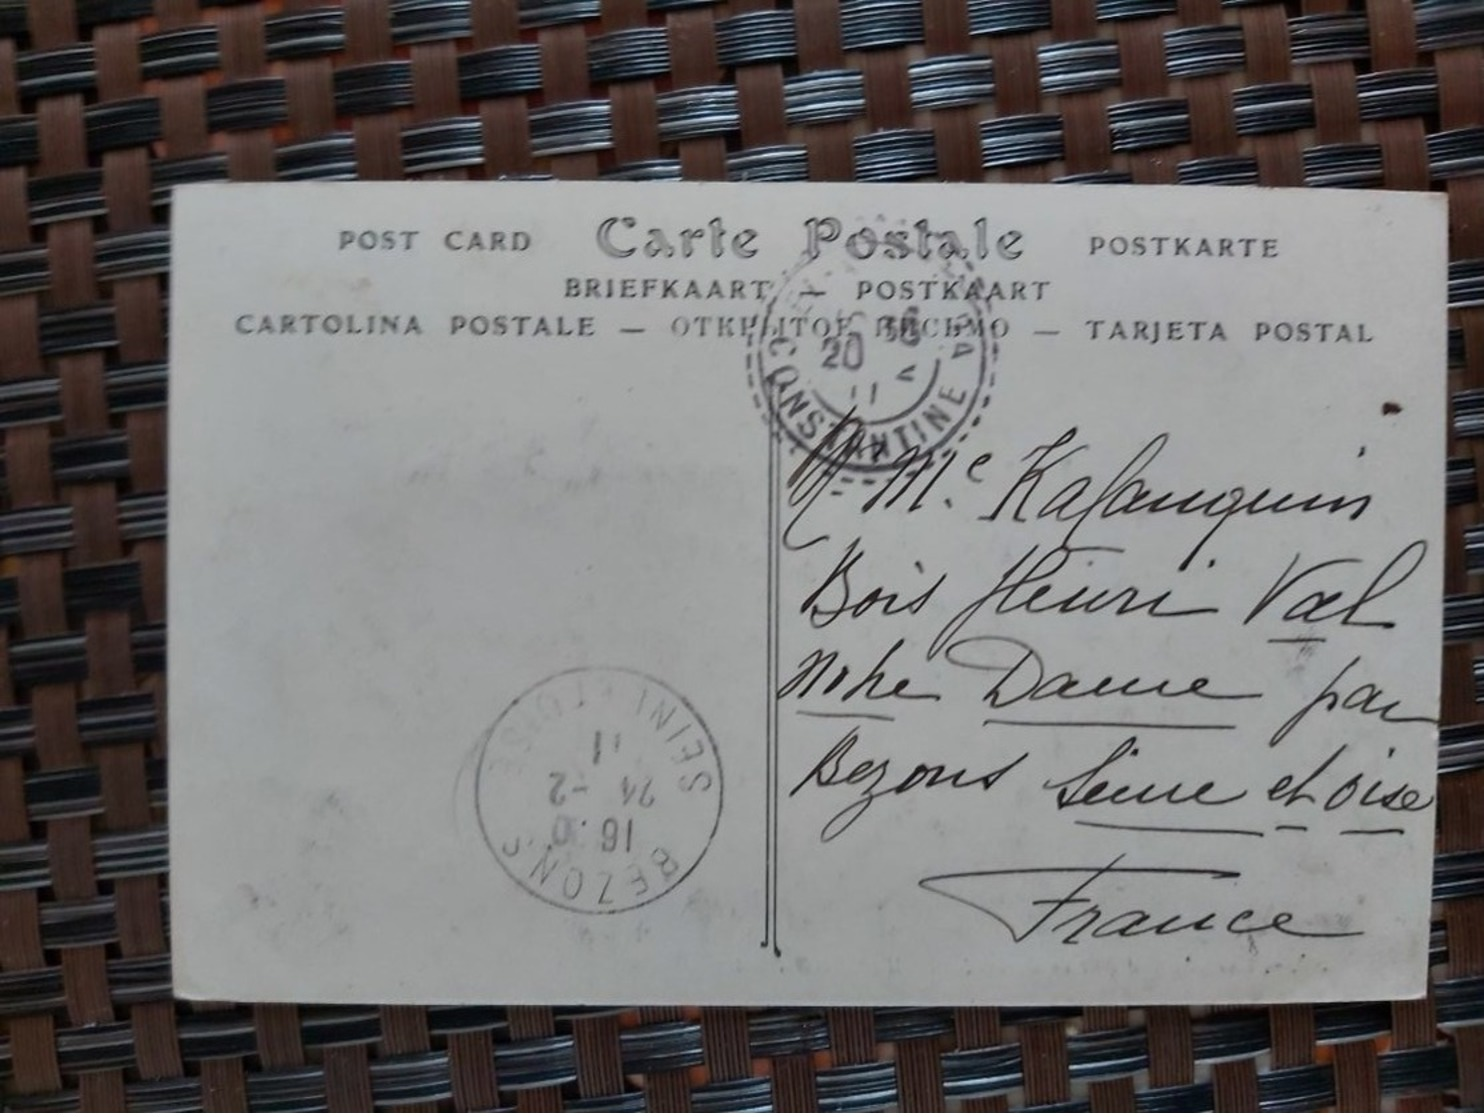 POST CARD Carte Postale POSTKARTE
BRIEFKAART — POSTKAART
CARTOLINA POSTALE — ОТКРЫТОЕ ПИСЬМО — TARJETA POSTAL
20
11
CONSTANTINE
M. Me
Bois Henri Val
Notre Dame par
Bezons Seine et Oise
France
SEINE ET OISE
11
24 -2
16
BEZONS